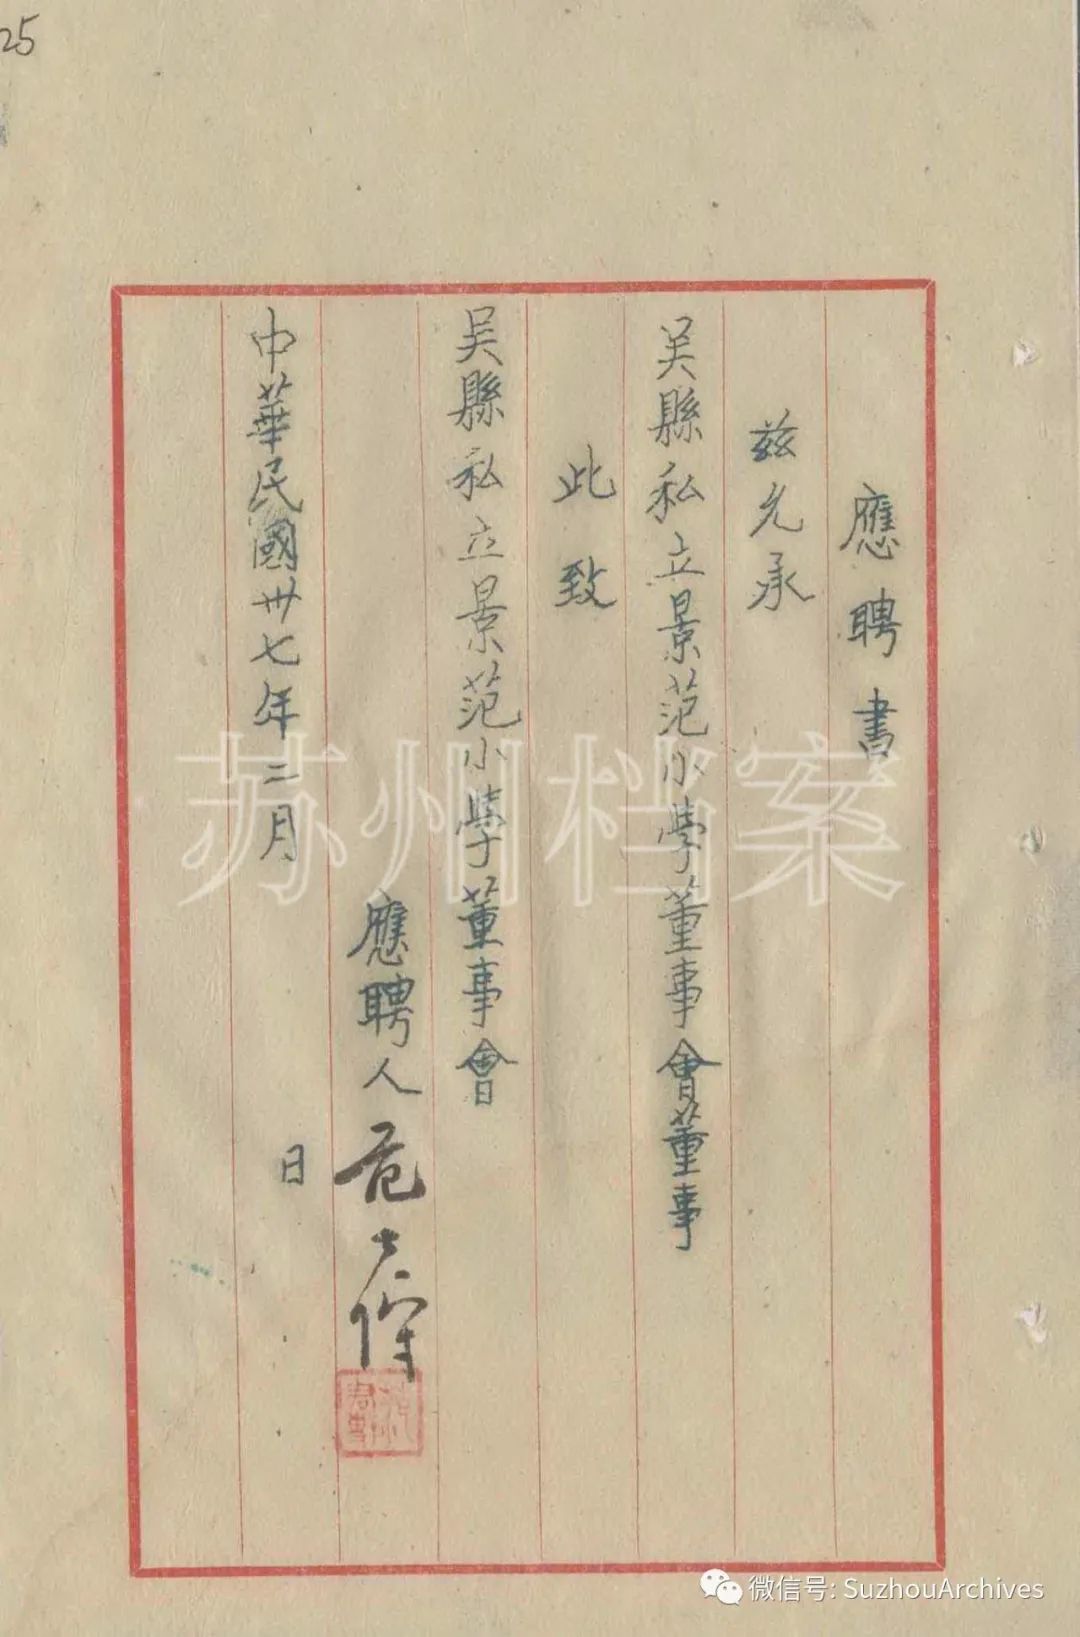 25
應聘書
茲允承
吴縣私立景范小學董事會董事
此致
吴縣私立景范小學董事會
應聘人 范
中華民國卅七年二月 日
苏州档案
微信号: SuzhouArchives